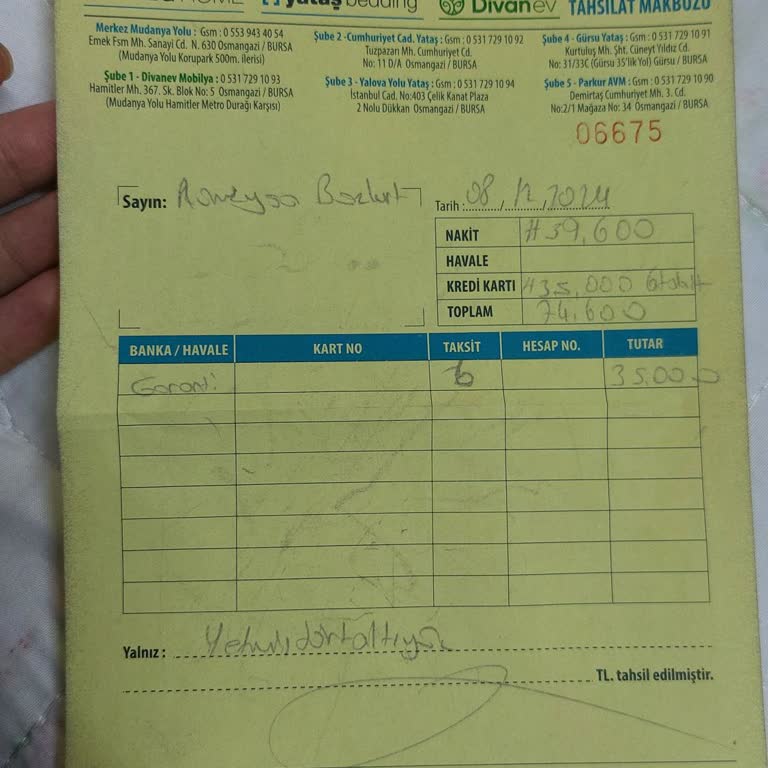 HOME yataş bedding Divanev TAHSİLAT MAKBUZU
Merkez Mudanya Yolu : Gsm : 0 553 943 40 54
Emek Fsm Mh. Sanayi Cd. N. 630 Osmangazi / BURSA
(Mudanya Yolu Korupark 500m. ilerisi)
Şube 1 - Divanev Mobilya : 0 531 729 10 93
Hamitler Mh. 367. Sk. Blok No: 5 Osmangazi / BURSA
(Mudanya Yolu Hamitler Metro Durağı Karşısı)
Şube 2 -Cumhuriyet Cad. Yataş : Gsm : 0 531 729 10 92
Tuzpazarı Mh. Cumhuriyet Cd.
No: 11 D/A Osmangazi / BURSA
Şube 3 - Yalova Yolu Yataş : Gsm : 0 531 729 10 94
İstanbul Cad. No:403 Çelik Kanat Plaza
2 Nolu Dükkan Osmangazi / BURSA
Şube 4 - Gürsu Yataş : Gsm : 0 531 729 10 91
Kurtuluş Mh. Şht. Cüneyt Yıldız Cd.
No: 31/33C (Gürsu 35'lik Yol) Gürsu / BURSA
Şube 5 - Parkur AVM : Gsm : 0 531 729 10 90
Demirtaş Cumhuriyet Mh. 3. Cd.
No:2/1 Mağaza No: 34 Osmangazi / BURSA
06675
Sayın: Bozkurt
Tarih : 08 / 12 / 2024
NAKİT 39,600
HAVALE
KREDİ KARTI 35,000
TOPLAM 74,600
BANKA / HAVALE KART NO TAKSİT HESAP NO. TUTAR
Garanti 6 35.000
Yalnız : Yetmişdörtaltıyüz
TL. tahsil edilmiştir.